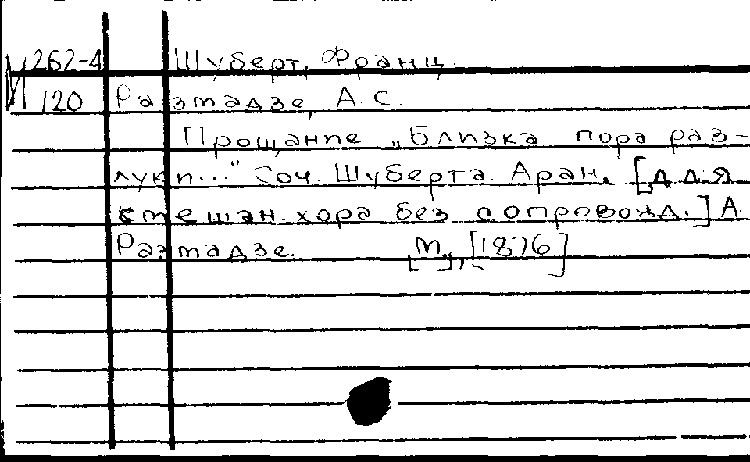 М 262-4 Шуберт, Франц.
120 Размадзе, А.С.
Прощание „Близка пора раз-
луки..." Соч. Шуберта. Аран. [для
смешан. хора без сопровожд.] А.
Размадзе. [М.], [1876]